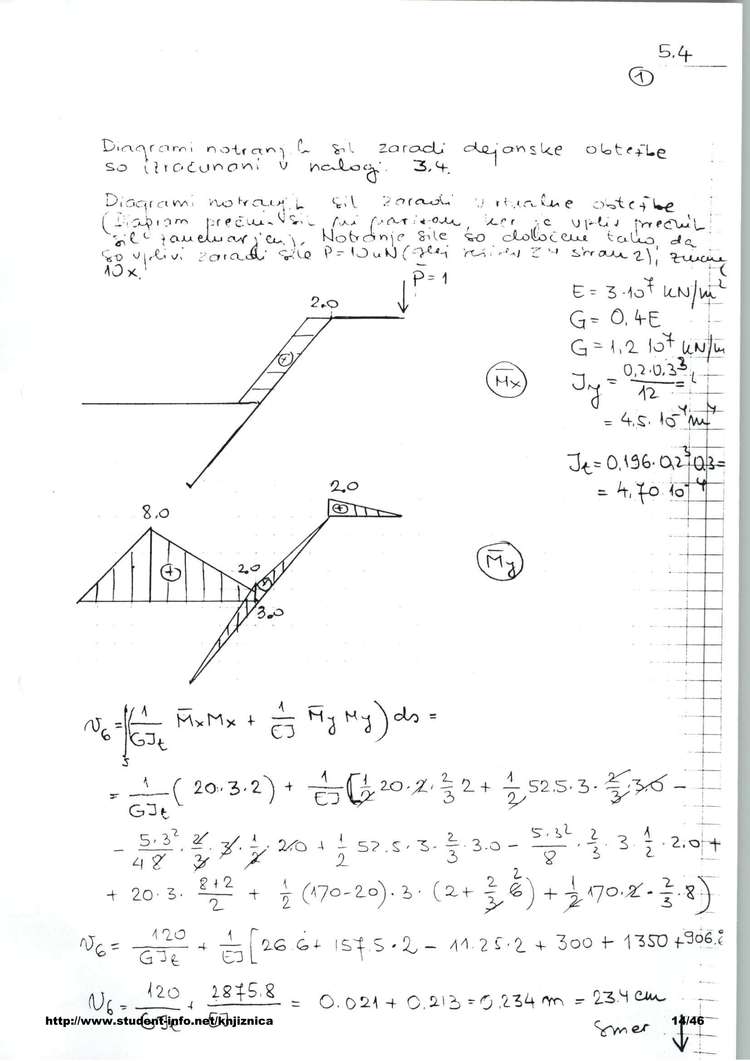 5.4
1
Diagrami notranjih sil zaradi dejanske obtežbe
so izračunani v nalogi 3.4.
Diagrami notranjih sil zaradi virtualne obtežbe
(Diagram prečnih sil ni narisan, ker je vpliv prečnih
sil zanemarjen). Notranje sile so določene tako, da
so vplivi zaradi sile P=10kN (glej stran 2),
10x.
P̄=1
2.0
+
M̄x
E = 3·10⁷ kN/m²
G = 0,4E
G = 1,2 10⁷ kN/m
Jy = 0,2·0,3³/12 =
= 4,5·10⁻⁴ m⁴
Jt = 0,196·0,2³ 0,3 =
= 4,70 10⁻⁴
2.0
8.0
+
+
2.0
3.0
M̄y
v6 = ∫s (1/GJt M̄x Mx + 1/EJ M̄y My) ds =
= 1/GJt (20·3·2) + 1/EJ [1/2 20·2·2/3 2 + 1/2 52.5·3·2/3·3.0 −
− 5·3²/8 · 2/3 · 3 · 1/2 · 20 + 1/2 52.5·3·2/3·3.0 − 5·3²/8 · 2/3 · 3 1/2 · 2.0 +
+ 20·3· 8+2/2 + 1/2 (170−20)·3·(2+ 2/3 6) + 1/2 170·2·2/3·8)
v6 = 120/GJt + 1/EJ [26.6 + 157.5·2 − 11.25·2 + 300 + 1350 + 906.
v6 = 120/GJt + 2875.8/EJ = 0.021 + 0.213 = 0.234 m = 23.4 cm
http://www.student-info.net/knjiznica 14/46
smer ↓